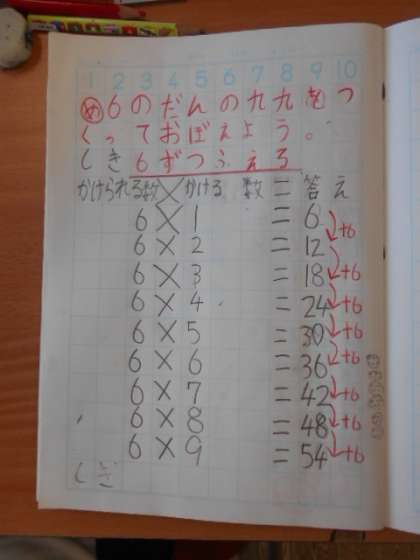 1 2 3 4 5 6 7 8 9 10
め 6のだんの九九をつ
くっておぼえよう。
しき 6ずつふえる
かけられる数×かける数=答え
6×1=6
+6
6×2=12
+6
6×3=18
+6
6×4=24
+6
6×5=30
+6
6×6=36
+6
6×7=42
+6
6×8=48
+6
6×9=54
しき